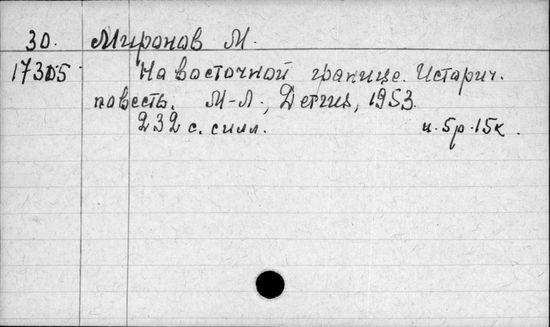 30. Миронов М.
17305 На восточной границе. Историч.
повесть. М-Л., Детгиз, 1953.
232 с. с илл. ц. 5р. 15к.